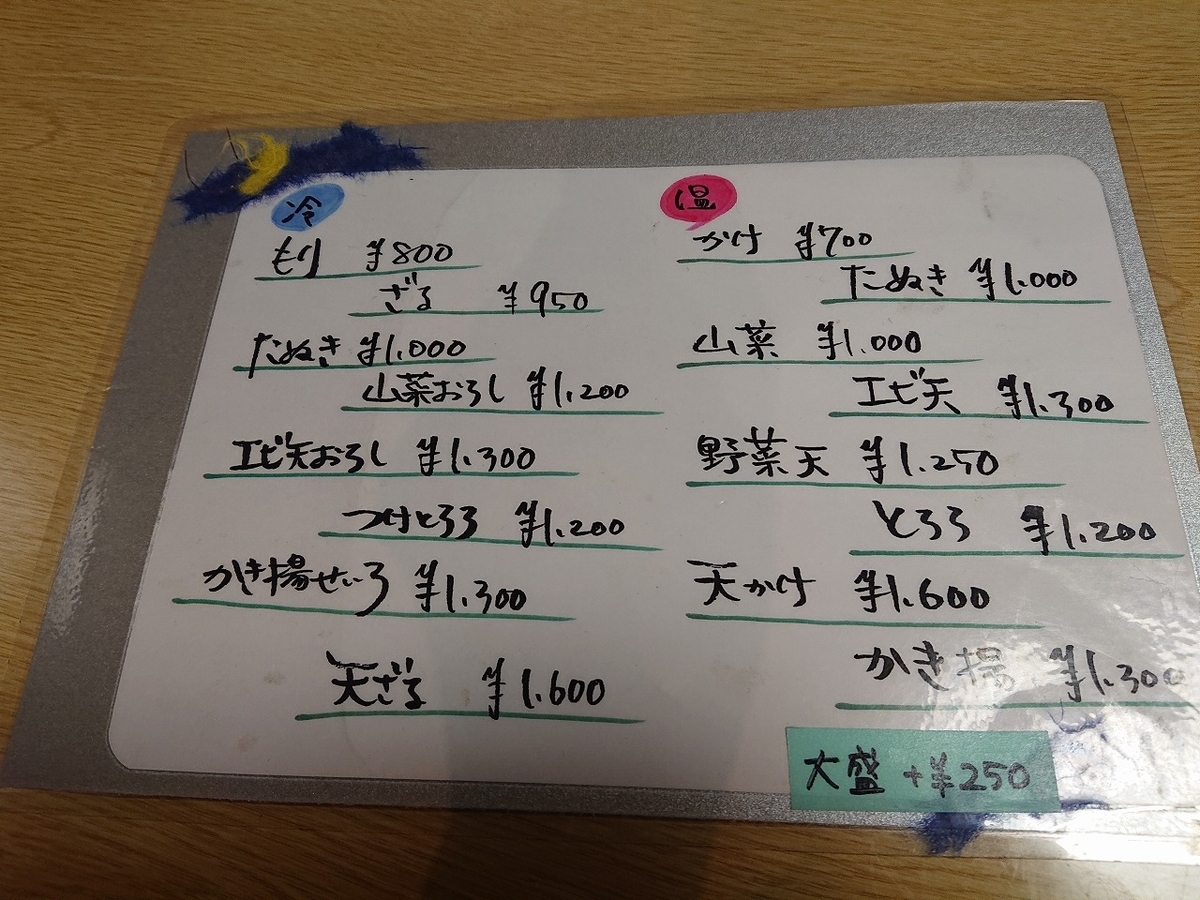 冷
もり ¥800
ざる ¥950
たぬき ¥1.000
山菜おろし ¥1.200
エビ天おろし ¥1.300
つけとろろ ¥1.200
かき揚せいろ ¥1.300
天ざる ¥1.600
温
かけ ¥700
たぬき ¥1.000
山菜 ¥1.000
エビ天 ¥1.300
野菜天 ¥1.250
とろろ ¥1.200
天かけ ¥1.600
かき揚 ¥1.300
大盛 +¥250